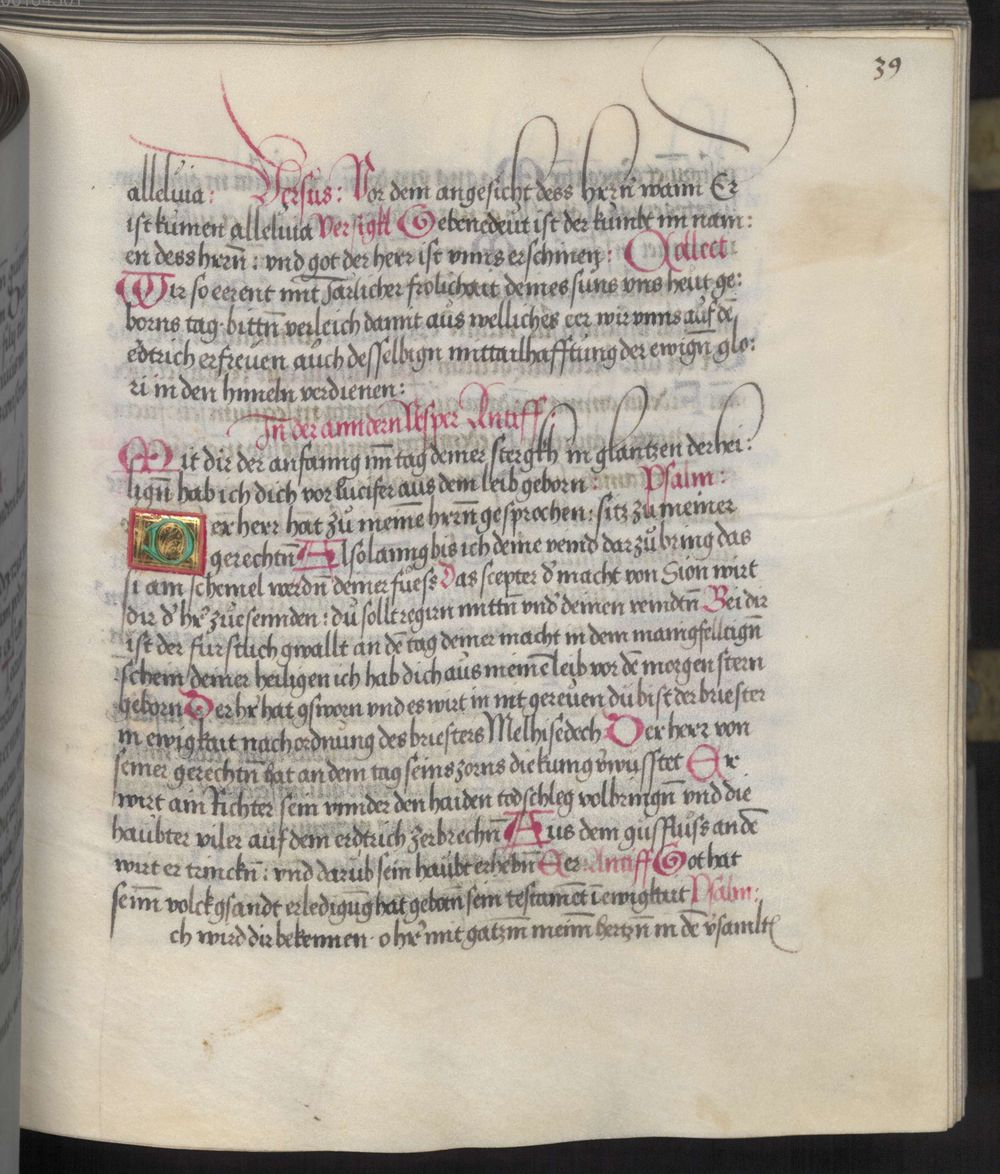 39
alleluia: Versus: Vor dem angesicht dess hrrn̄ wann Er
ist kumen alleluia Versigkl Gebenedeut ist der kumbt im nam:
en dess hrrn̄: vnd got der herr ist vnns erschinen: Collect
Wir so eerent mit Jarlicher frolichait deines suns vns heut ge:
borns tag bittn̄ verleich damit aus welliches eer wir vnns auf dē
edtrich erfreuen auch desselbign mittailhafftung der ewign̄ glo:
ri in den himeln verdienen:
In der anndern Vesper Antiff
Mit dir der anfanng im̄ tag deiner stergkh in glantzen der hei:
lign̄ hab ich dich vor lucifer aus dem leib geborn: Psalm:
Der herr hat zu meinē hrrn̄ gesprochen: sitz zu meiner
gerechtn̄ Also lanng bis ich deine veind darzu bring das
si am schemel werdn̄ deiner fuess Das scepter d' macht von Sion wirt
dir d' hr̄ zuesennden: du sollt regirn mittn̄ vnd' deinen veindtn̄ Bei dir
ist der furstlich gwallt an dē tag deiner macht in dem manigfelltign̄
schein deiner heiligen ich hab dich aus meinē leib vor dē morgenstern
geborn Der hr̄ hat gsworn vnd es wirt in nit gereuen du bist der briester
in ewigkait nach ordnung des briesters Melhisedech Der herr von
seiner gerechtn̄ hat an dem tag seins zorns die kunig v'wusstet Er
wirt ain Richter sein vnnder den haiden todschleg volbringn̄ vnd die
haubter viler auf dem erdtrich zerbrechn̄ Aus dem gusfluss an dē
wirt er trinckn̄: vnd darub sein haubt erhebn̄ Eer Antiff Got hat
seim̄ volck gsandt erledigūg hat gebotn̄ sein testamēt ī ewigkait Psalm:
ch wird dir bekennen o hr̄ mit gātzm̄ meim̄ hertzn̄ in dē v'samlt